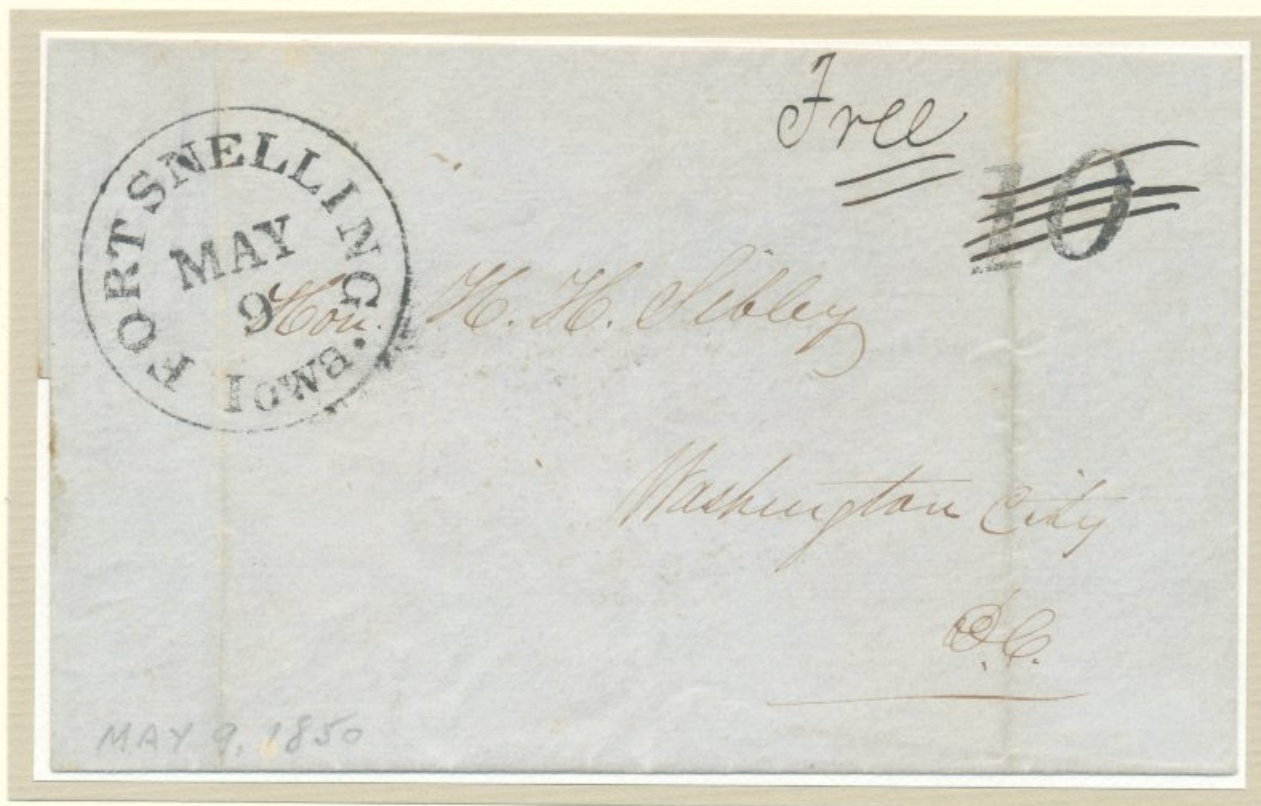 Free
10
FORT SNELLING. IOWA.
MAY
9
Hon. H. H. Sibley
Washington City
D.C.
MAY 9, 1850